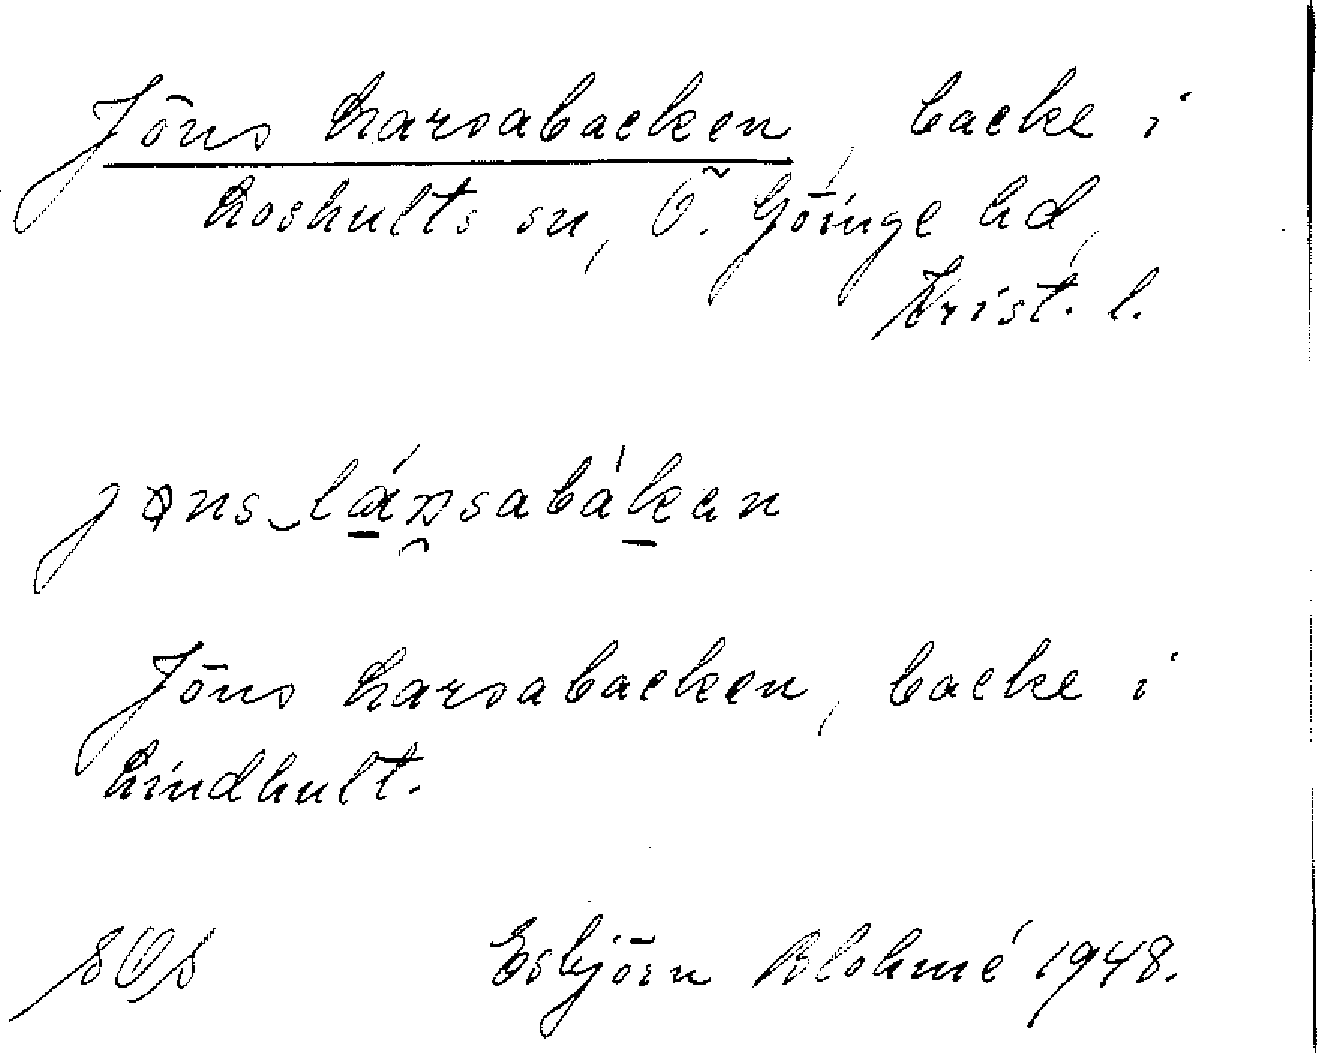 Jöns Larsabacken, backe i
Loshults sn, Ö. Göinge hd,
Krist. l.
jöns lársabákan
Jöns Larsabacken, backe i
Lindhult.
SOS Esbjörn Blohmé 1948.